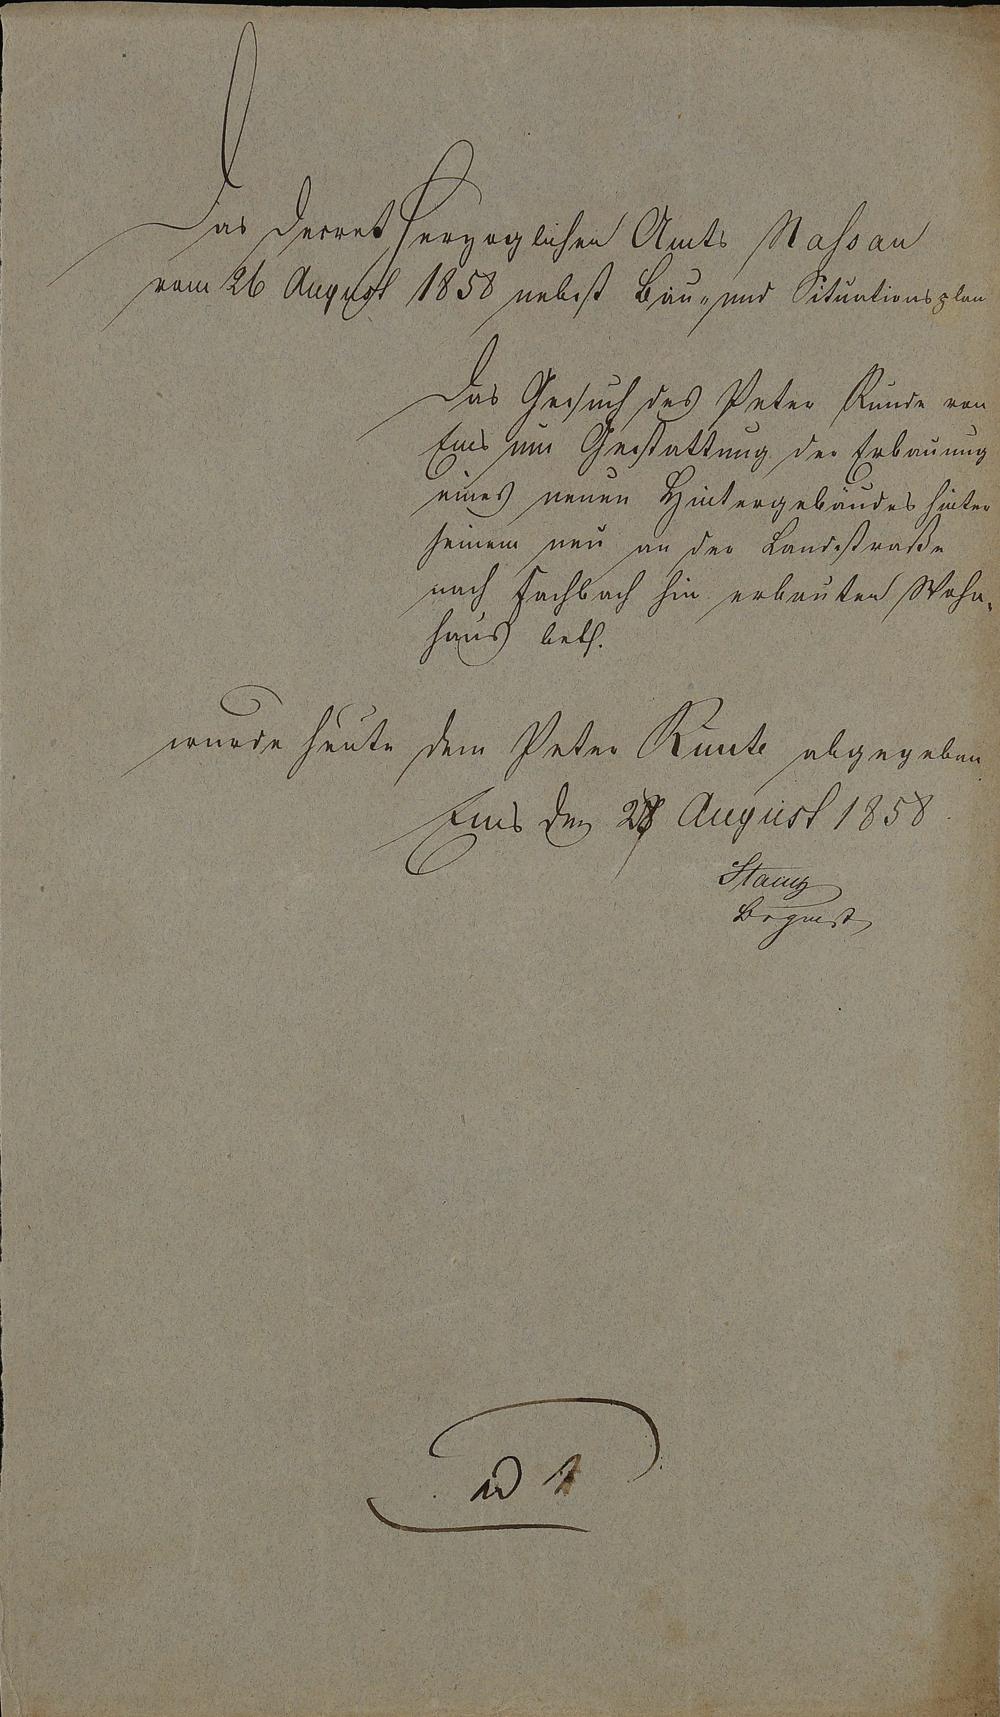 Das Decret Herzoglichen Amts Nassau
vom 26 August 1858 nebst Bau- und Situationsplan
Das Gesuch des Peter Runde von
Ems um Gestattung der Erbauung
eines neuen Hintergebäudes hinter
seinem neu an der Landstraße
nach Fachbach hin erbauten Wohn-
haus betf.
wurde heute dem Peter Runte abgegeben
Ems den 28 August 1858
Brgmst